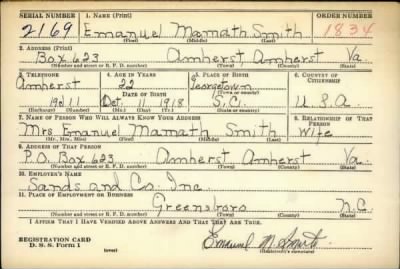 SERIAL NUMBER 1. NAME (Print) ORDER NUMBER
2169 Emanuel Mamath Smith 1834
(First) (Middle) (Last)
2. ADDRESS (Print)
Box 623 Amherst, Amherst Va.
(Number and street or R. F. D. number) (Town) (County) (State)
3. TELEPHONE 4. AGE IN YEARS 5. PLACE OF BIRTH 6. COUNTRY OF CITIZENSHIP
Amherst 22 Georgetown
DATE OF BIRTH
Oct. 11 1918 S.C. U.S.A.
(Exchange) (Number) (Mo.) (Day) (Yr.) (State or country)
7. NAME OF PERSON WHO WILL ALWAYS KNOW YOUR ADDRESS 8. RELATIONSHIP OF THAT PERSON
Mrs Emanuel Mamath Smith Wife
(Mr., Mrs., Miss) (First) (Middle) (Last)
9. ADDRESS OF THAT PERSON
P.O. Box 623 Amherst Amherst Va.
(Number and street or R. F. D. number) (Town) (County) (State)
10. EMPLOYER'S NAME
Sands and Co. Inc.
11. PLACE OF EMPLOYMENT OR BUSINESS
Greensboro N.C.
(Number and street or R. F. D. number) (Town) (County) (State)
I AFFIRM THAT I HAVE VERIFIED ABOVE ANSWERS AND THAT THEY ARE TRUE.
REGISTRATION CARD
D. S. S. Form 1 (over) Emanuel M. Smith
(Registrant's signature)